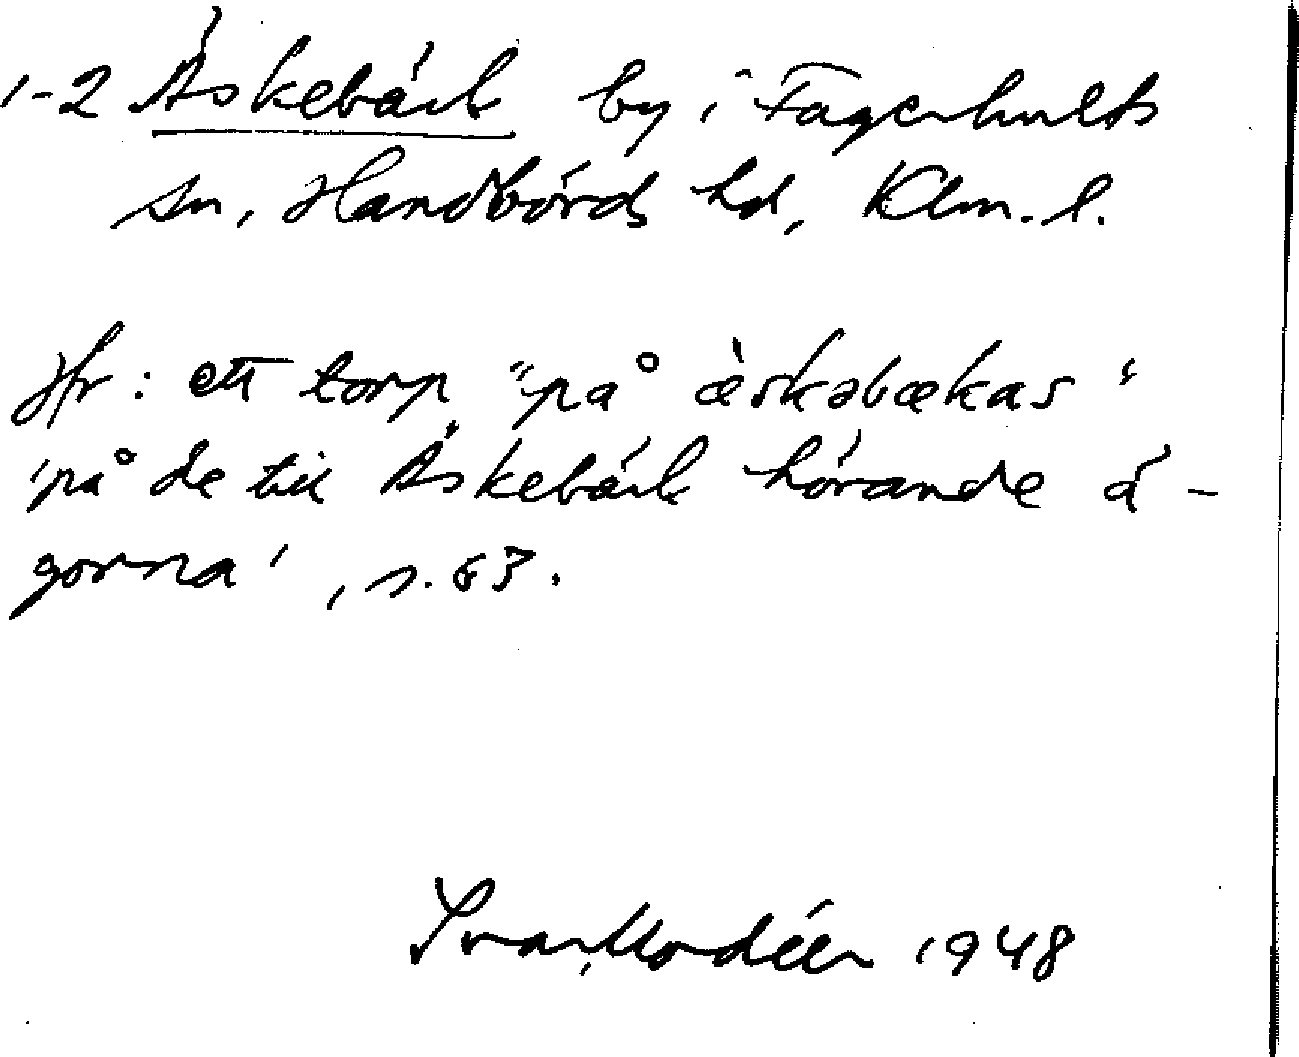 1-2 Äskebäck by i Fagerhults
sn, Handbörds hd, Klm. l.
Hfr: ett torp "på æ̀skəbækas"
'på de till Äskebäck hörande ä-
gorna', s. 63.
Ivar Modéer 1948